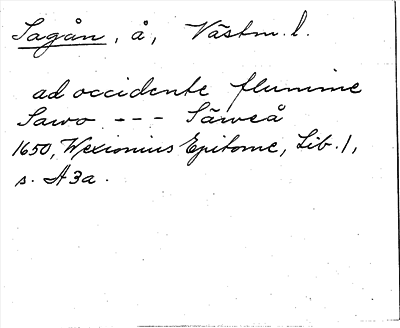 Sagån, å, Västm. l.
ad occidente flumine
Sawo --- Säweå
1650, Wexionius Epitome, Lib. 1,
s. A3a.